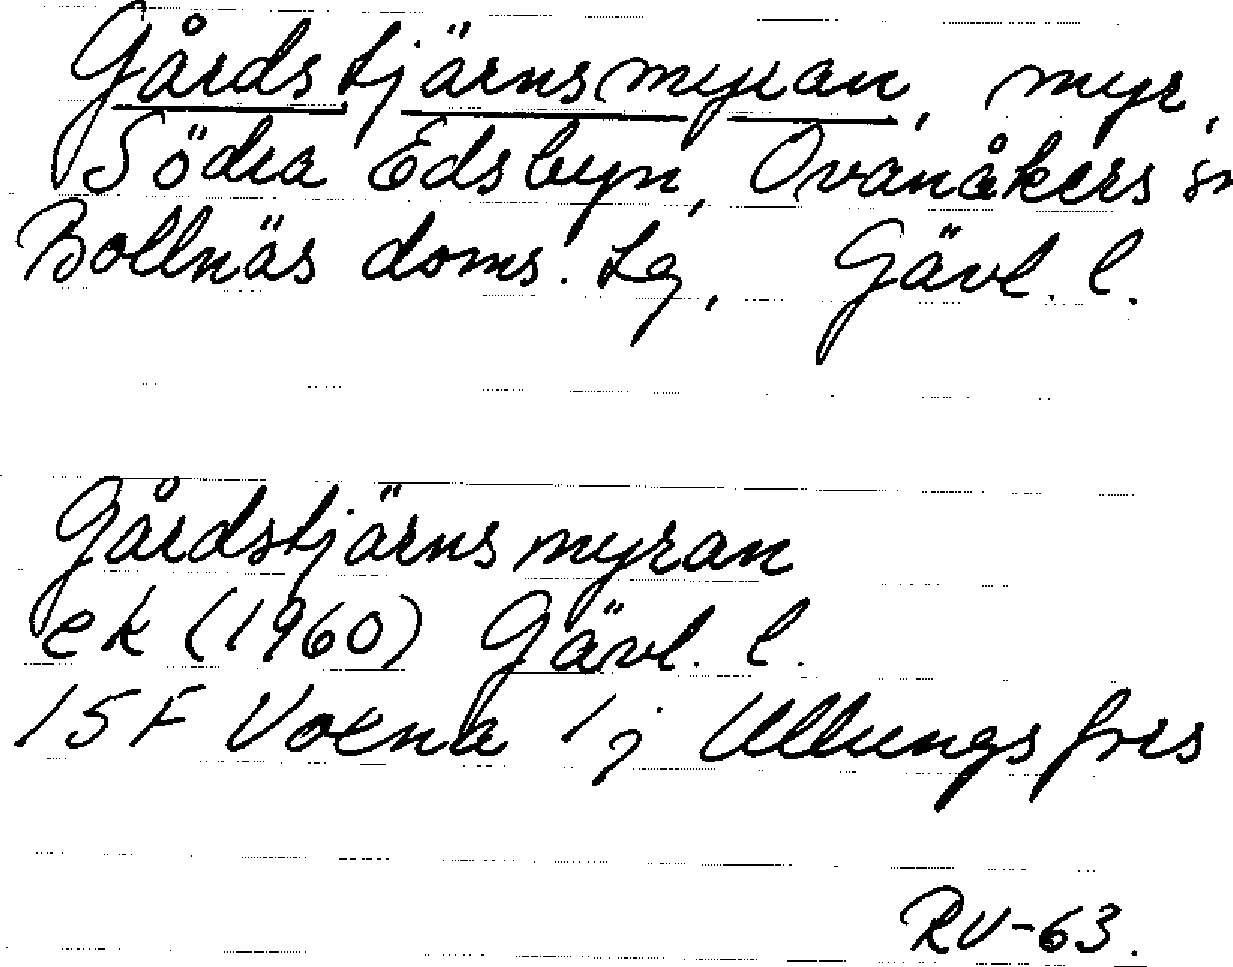 Gårdstjärnsmyran, myr,
Södra Edsbyn, Ovanåkers sn
Bollnäs doms. tg, Gävl. l.
Gårdstjärnsmyran
ek (1960) Gävl. l.
15F Voxna 1j Ullungsfors
RV-63.